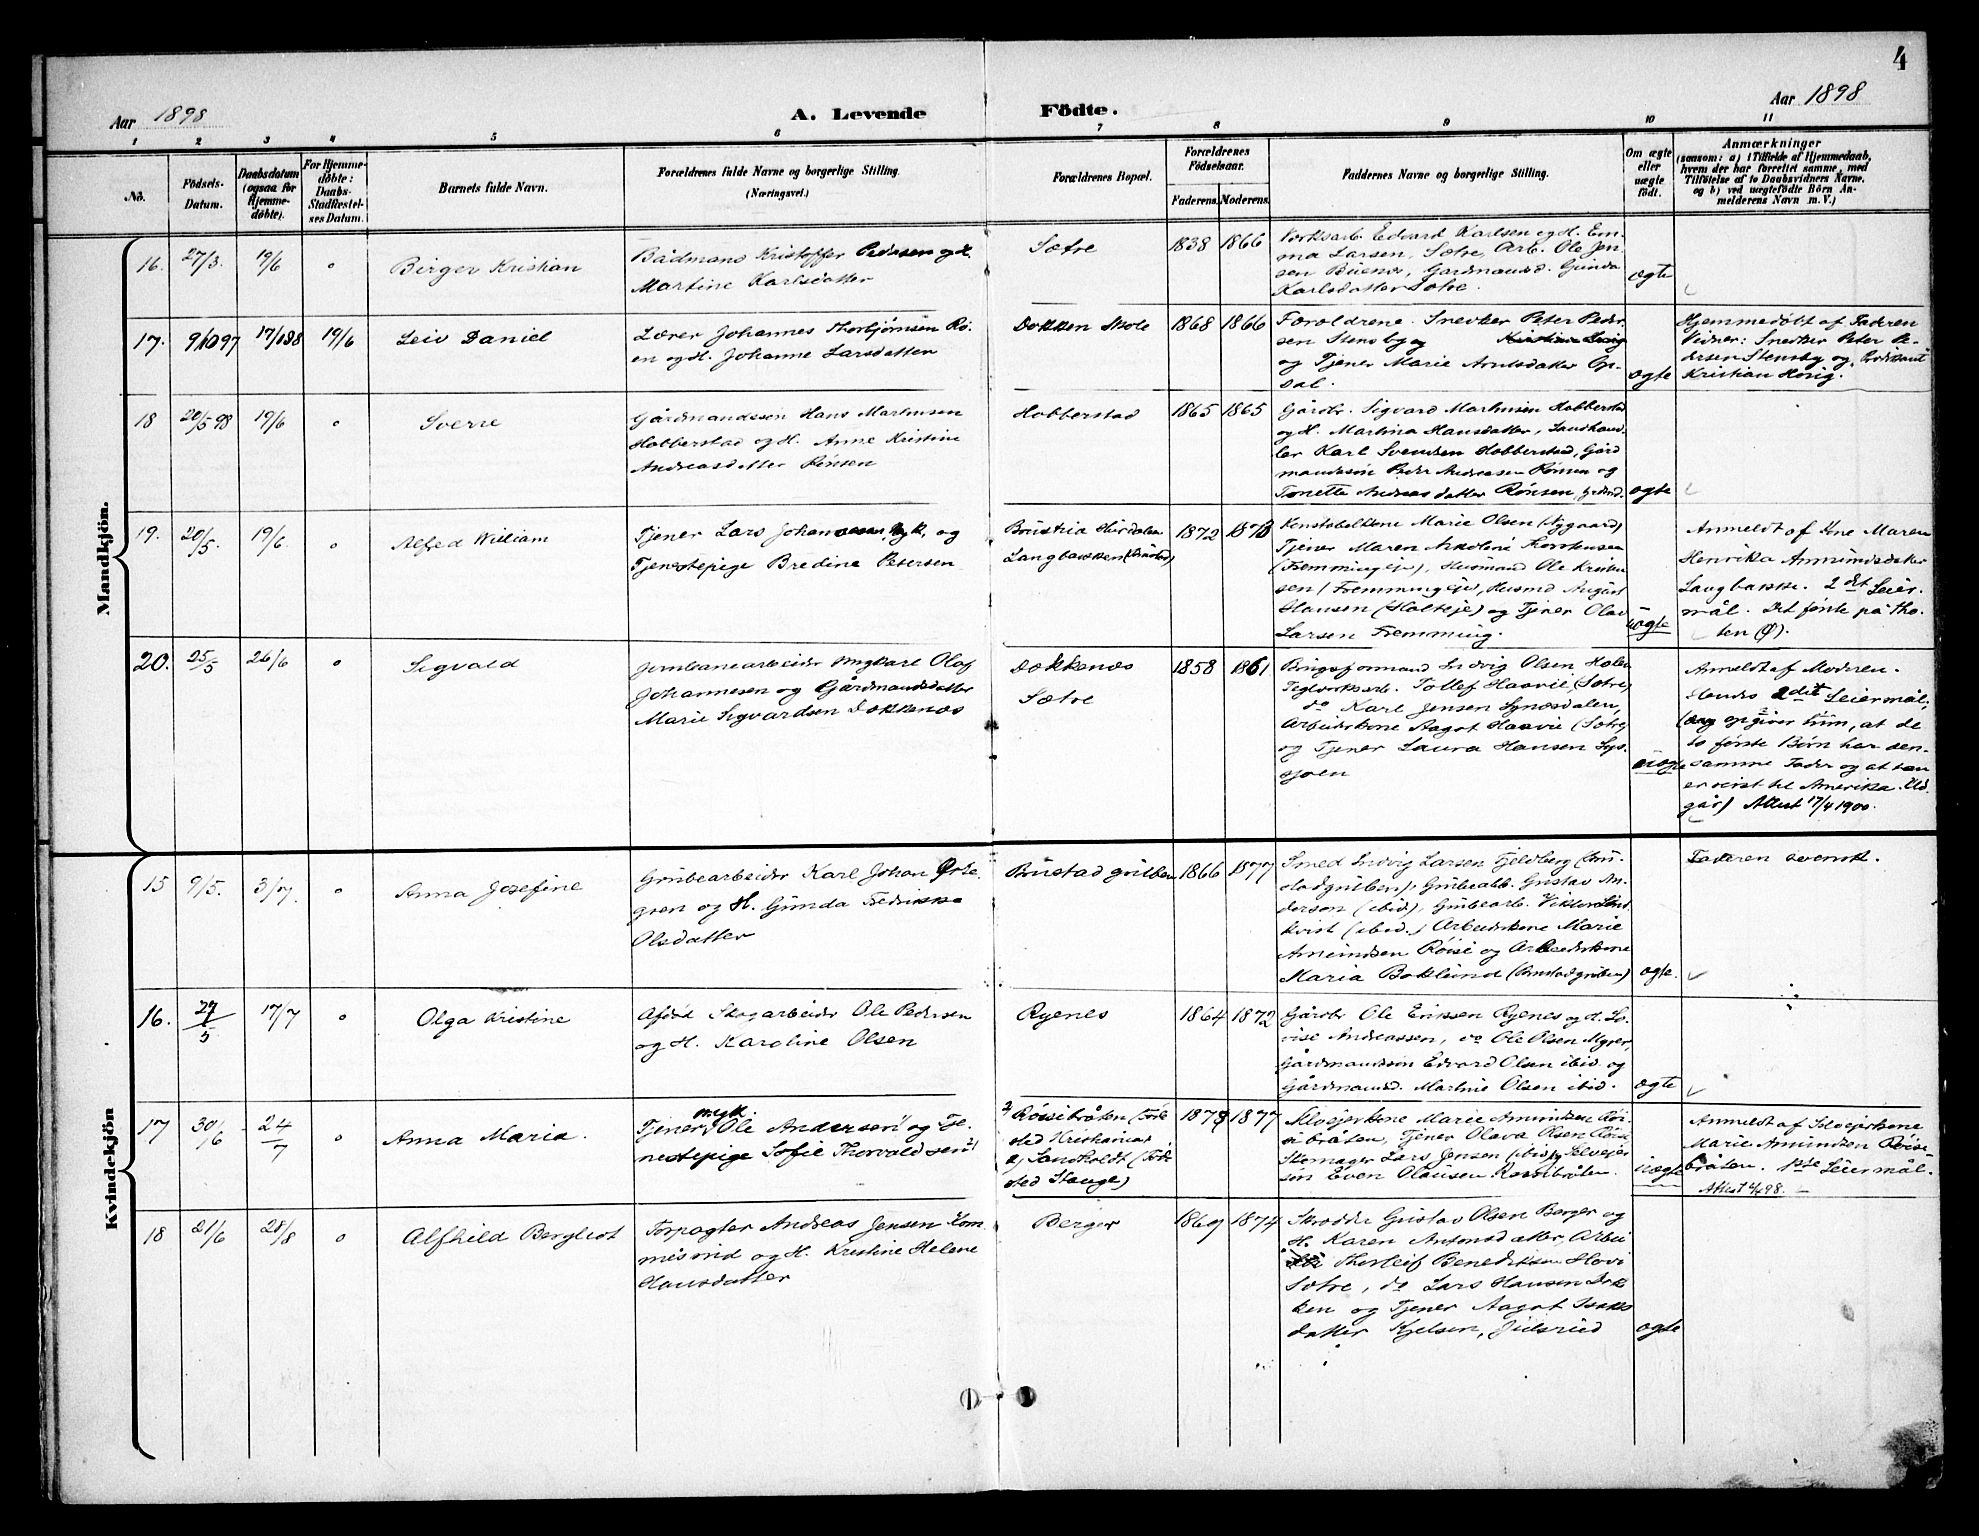 4
Aar 1898
A. Levende Födte.
Aar 1898
1 2 3 4 5 6 7 8 9 10 11
No.
Födsels-Datum.
Daabsdatum (ogsaa for Hjemmedöbte).
For Hjemmedöbte: Daabs-Stadfestelses Datum.
Barnets fulde Navn.
Forældrenes fulde Navne og borgerlige Stilling.
(Næringsvei.)
Forældrenes Bopæl.
Forældrenes Födselsaar.
Faderens. Moderens.
Faddernes Navne og borgerlige Stilling.
Om ægte eller uægte födt.
Anmærkninger
(saasom: a) i Tilfælde af Hjemmedaab, hvem der har forrettet samme, med Tilföielse af to Daabsvidners Navne, og b) ved uægtefödte Börn Anmelderens Navn m. V.)
Mandkjön.
16. 27/3. 19/6 " Birger Kristian
Bådmand Kristoffer Pedersen og H.
Martine Karlsdatter
Sætre
1838 1866
Edvard Karlsen og H. Em-
ma Larsen, Sætre, Arb. Ole Jen-
sen Büenes, Gardmansd. Gunda
Karlsdatter Sætre.
ægte
17. 9/10 97 17/1 98 19/6 Leiv Daniel
Lærer Johannes Thorbjørnsen Rø-
en og H. Johanne Larsdatter
Dokken Skole
1868 1866
Forældrene. Snedker Peter Peder-
sen Stensby og
og Tjener Marie Arntsdatter Op-
sal.
ægte
Hjemmedøbt af Faderen
Vidner: Snedker Peter Pe-
dersen Stensby og Praktikant
Kristian Hovig.
18 20/5 98 19/6 " Sverre
Gårdmandssøn Hans Martinsen
Hobberstad og H. Anne Kristine
Andreasdatter Rønsen
Hobberstad
1865 1865
Gårdbr. Sigvard Martinsen Hobberstad
og H. Martina Hansdatter, Landhand-
ler Karl Svendsen Hobberstad, Gård
mandssøn Peder Andreasen Rønsen og
Tonette Andreasdatter Rønsen,
ægte
19. 20/5. 19/6. " Alfred William
Tjener Lars Johannessen, og
Tjenestepige Bredine Petersen
Langbakken
1872 1878
Konstabelkone Marie Olsen (Nygaard)
Tjener Maren Nikoline Thorstensen
(Fremmingeje), Husmand Ole Kristian-
sen (Fremmingeje), Husmd August
Hansen (Holteje) og Tjener Olav
Larsen Fremming.
uægte
Anmeldt af Kone Maren
Henrika Amundsdatter
Langbakke. 2det Leier-
mål. Det første på Tho-
ten (Ø).
20. 25/5 26/6 " Sigvald
Jernbanearbeider Ungkarl Olaf
Johannesen og Gårdmandsdatter
Marie Sigvardsen Dokkenæs
Dokkenæs
Sætre
1858 1861
Ludvig Olsen Holm
Teglverksarb. Tollef Haavie (Sætre)
do Karl Jensen Synesdalen,
Arbeiderkone Aagot Haavie (Sætre)
og Tjener Laura Hansen Sys-
sjoen
uægte
Anmeldt af Moderen.
Hendes 2det Leiermål,
(dog opgiver hun, at de
to første Børn har den-
samme Fader og at han
er reist til Amerika.
Attest 17/4 1900.
Kvindekjön
15 9/5. 3/7. " Anna Josefine
Grubearbeider Karl Johan Ørte-
gren og H. Gunda Fredrikke
Olsdatter
Brustad gruben
1866 1877
Smed Ludvig Larsen Fjeldberg (Bru-
stadgruben), Grubearb. Gustav An-
derson (ibid.), Grubearb. Viktor Lind-
kvist (ibid.) Arbeiderkone Marie
Amundsen Røise og Arbeiderkone
Maria Boklund (Brustadgruben)
ægte.
Faderen svensk.
16. 27/5 17/7 " Olga Kristine
Afdød Skogarbeider Ole Pedersen
og H. Karoline Olsen
Ryenes
1864 1872
Gårdbr Ole Eriksen Ryenes og H. Lo-
vise Andreassen, do Ole Olsen Myrer,
Gårdmandssøn Edvard Olsen ibid. og
Gårdmandsd. Martine Olsen ibid.
ægte
17 30/6 24/7 " Anna Maria.
Tjener ungk. Ole Andersen 1) og Tje-
nestepige Sofie Thorvaldsen 2)
1) Røisibråten (Føde
sted Kristiania)
2) Sandholdt (Føde
sted Stange)
1878 1877
Selveierkone Marie Amundsen Røi-
sibråten, Tjener Olava Olsen Røise
Skomager Lars Jensen (ibid), Selveier
søn Even Olausen Røisibråten.
uægte
Anmeldt af Selveierkone
Marie Amundsen Røise-
bråten. 1ste Leiermål.
18 21/6 28/8 " Alfhild Bergliot
Forpagter Andreas Jensen Kom-
og H. Kristine Helene
Hansdatter
Berger
1869 1874
Skrædder Gustav Olsen Berger og
H. Karen Antonsdatter, Arbei
Thorleif Benediktsen Hovi
Sætre, do Lars Hansen Dok
ken og Tjener Aagot Isaks
datter Kjelsen, Julsrud
ægte